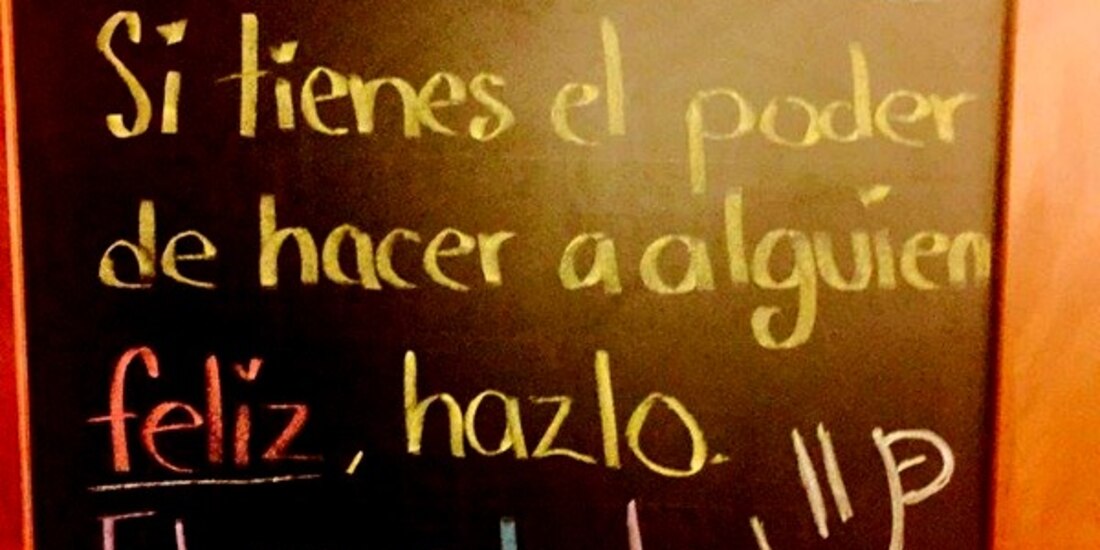 Si tienes el poder
de hacer a alguien
feliz, hazlo.